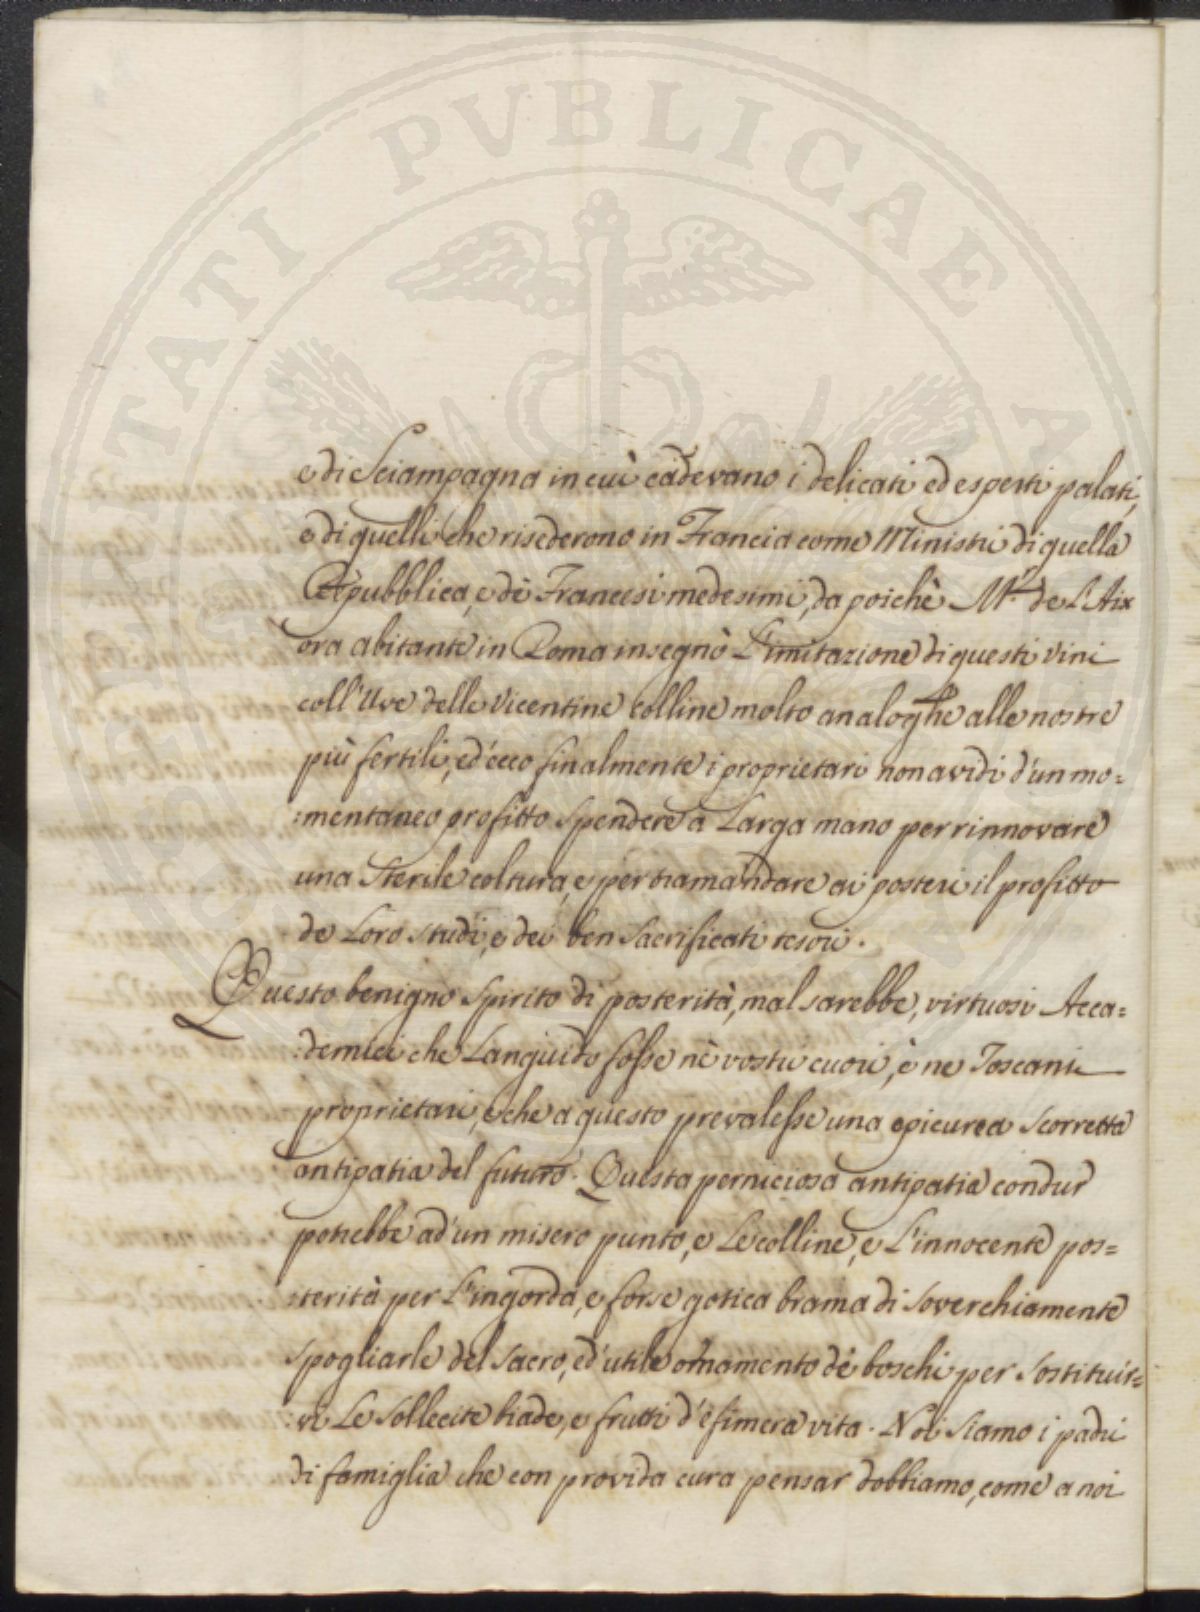 PROSPERITATI PUBLICAE A
e di Sciampagna in cui cadevano i delicati ed esperti palati,
e di quelli che risederono in Francia come Ministri di quella
Repubblica, e dè Francesi medesimi, da poichè M.r de L'Aix
ora abitante in Roma insegnò L'imitazione di questi vini
coll'Uve delle Vicentine colline molto analoghe alle nostre
più fertili, ed'ecco finalmente i proprietari non avidi d'un mo=
:mentaneo profitto spendere a Larga mano per rinnovare
una Sterile coltura, e per tramandare ai posteri il profitto
de Loro studi, e dei ben Sacrificati tesori.
Questo benigno Spirito di posterità, mal sarebbe, virtuosi Acca=
:demici che Languido fosse nè vostri cuori, è ne Toscani
proprietari, e che a questo prevalesse una epicurea Scorretta
antipatia del futuro. Questa perniciosa antipatia condur
potrebbe ad'un misero punto, e Le colline, e L'innocente pos=
:terità per L'ingorda, e forse gotica brama di Soverchiamente
spogliarle del Sacro, ed'utile ornamento dè boschi per Sostituir=
:vi Le Sollecite biade, e frutti d'efimera vita. Noi Siamo i padri
di famiglia che con provida cura pensar dobbiamo, come a noi